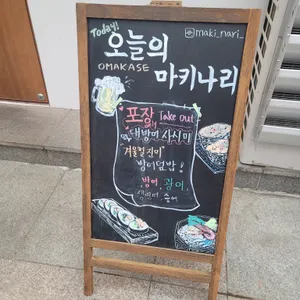 Today!
@maki_nari_
오늘의
OMAKASE
마키나리
포장 Take out
대방어 사시미
"겨울별진미"
방어덮밥!
방어, 광어,
숭어